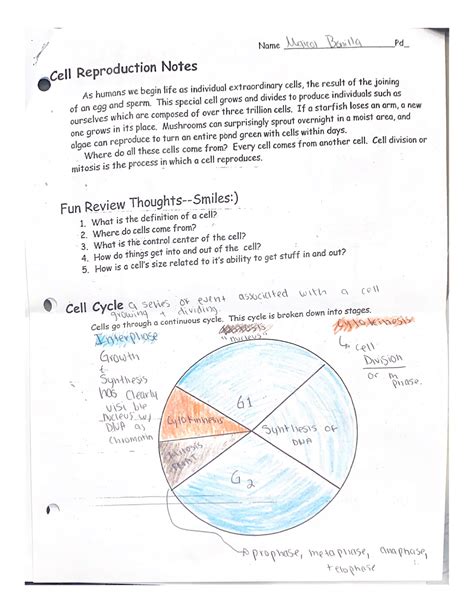 Name Pd_
Cell Reproduction Notes
As humans we begin life as individual extraordinary cells, the result of the joining
of an egg and sperm. This special cell grows and divides to produce individuals such as
ourselves which are composed of over three trillion cells. If a starfish loses an arm, a new
one grows in its place. Mushrooms can surprisingly sprout overnight in a moist area, and
algae can reproduce to turn an entire pond green with cells within days.
Where do all these cells come from? Every cell comes from another cell. Cell division or
mitosis is the process in which a cell reproduces.
Fun Review Thoughts--Smiles:)
1. What is the definition of a cell?
2. Where do cells come from?
3. What is the control center of the cell?
4. How do things get into and out of the cell?
5. How is a cell's size related to it's ability to get stuff in and out?
Cell Cycle a series of event associated with a cell
growing + dividing
Cells go through a continuous cycle. This cycle is broken down into stages.
Interphase
"nucleus"
Cytokinesis
Growth
&
Synthesis
has clearly
visible
nucleus w/
DNA as
chromatin
cell
Division
or m
phase.
G1
Cytokinesis
Synthesis of
DNA
Mitosis
G2
prophase, metaphase, anaphase,
telophase